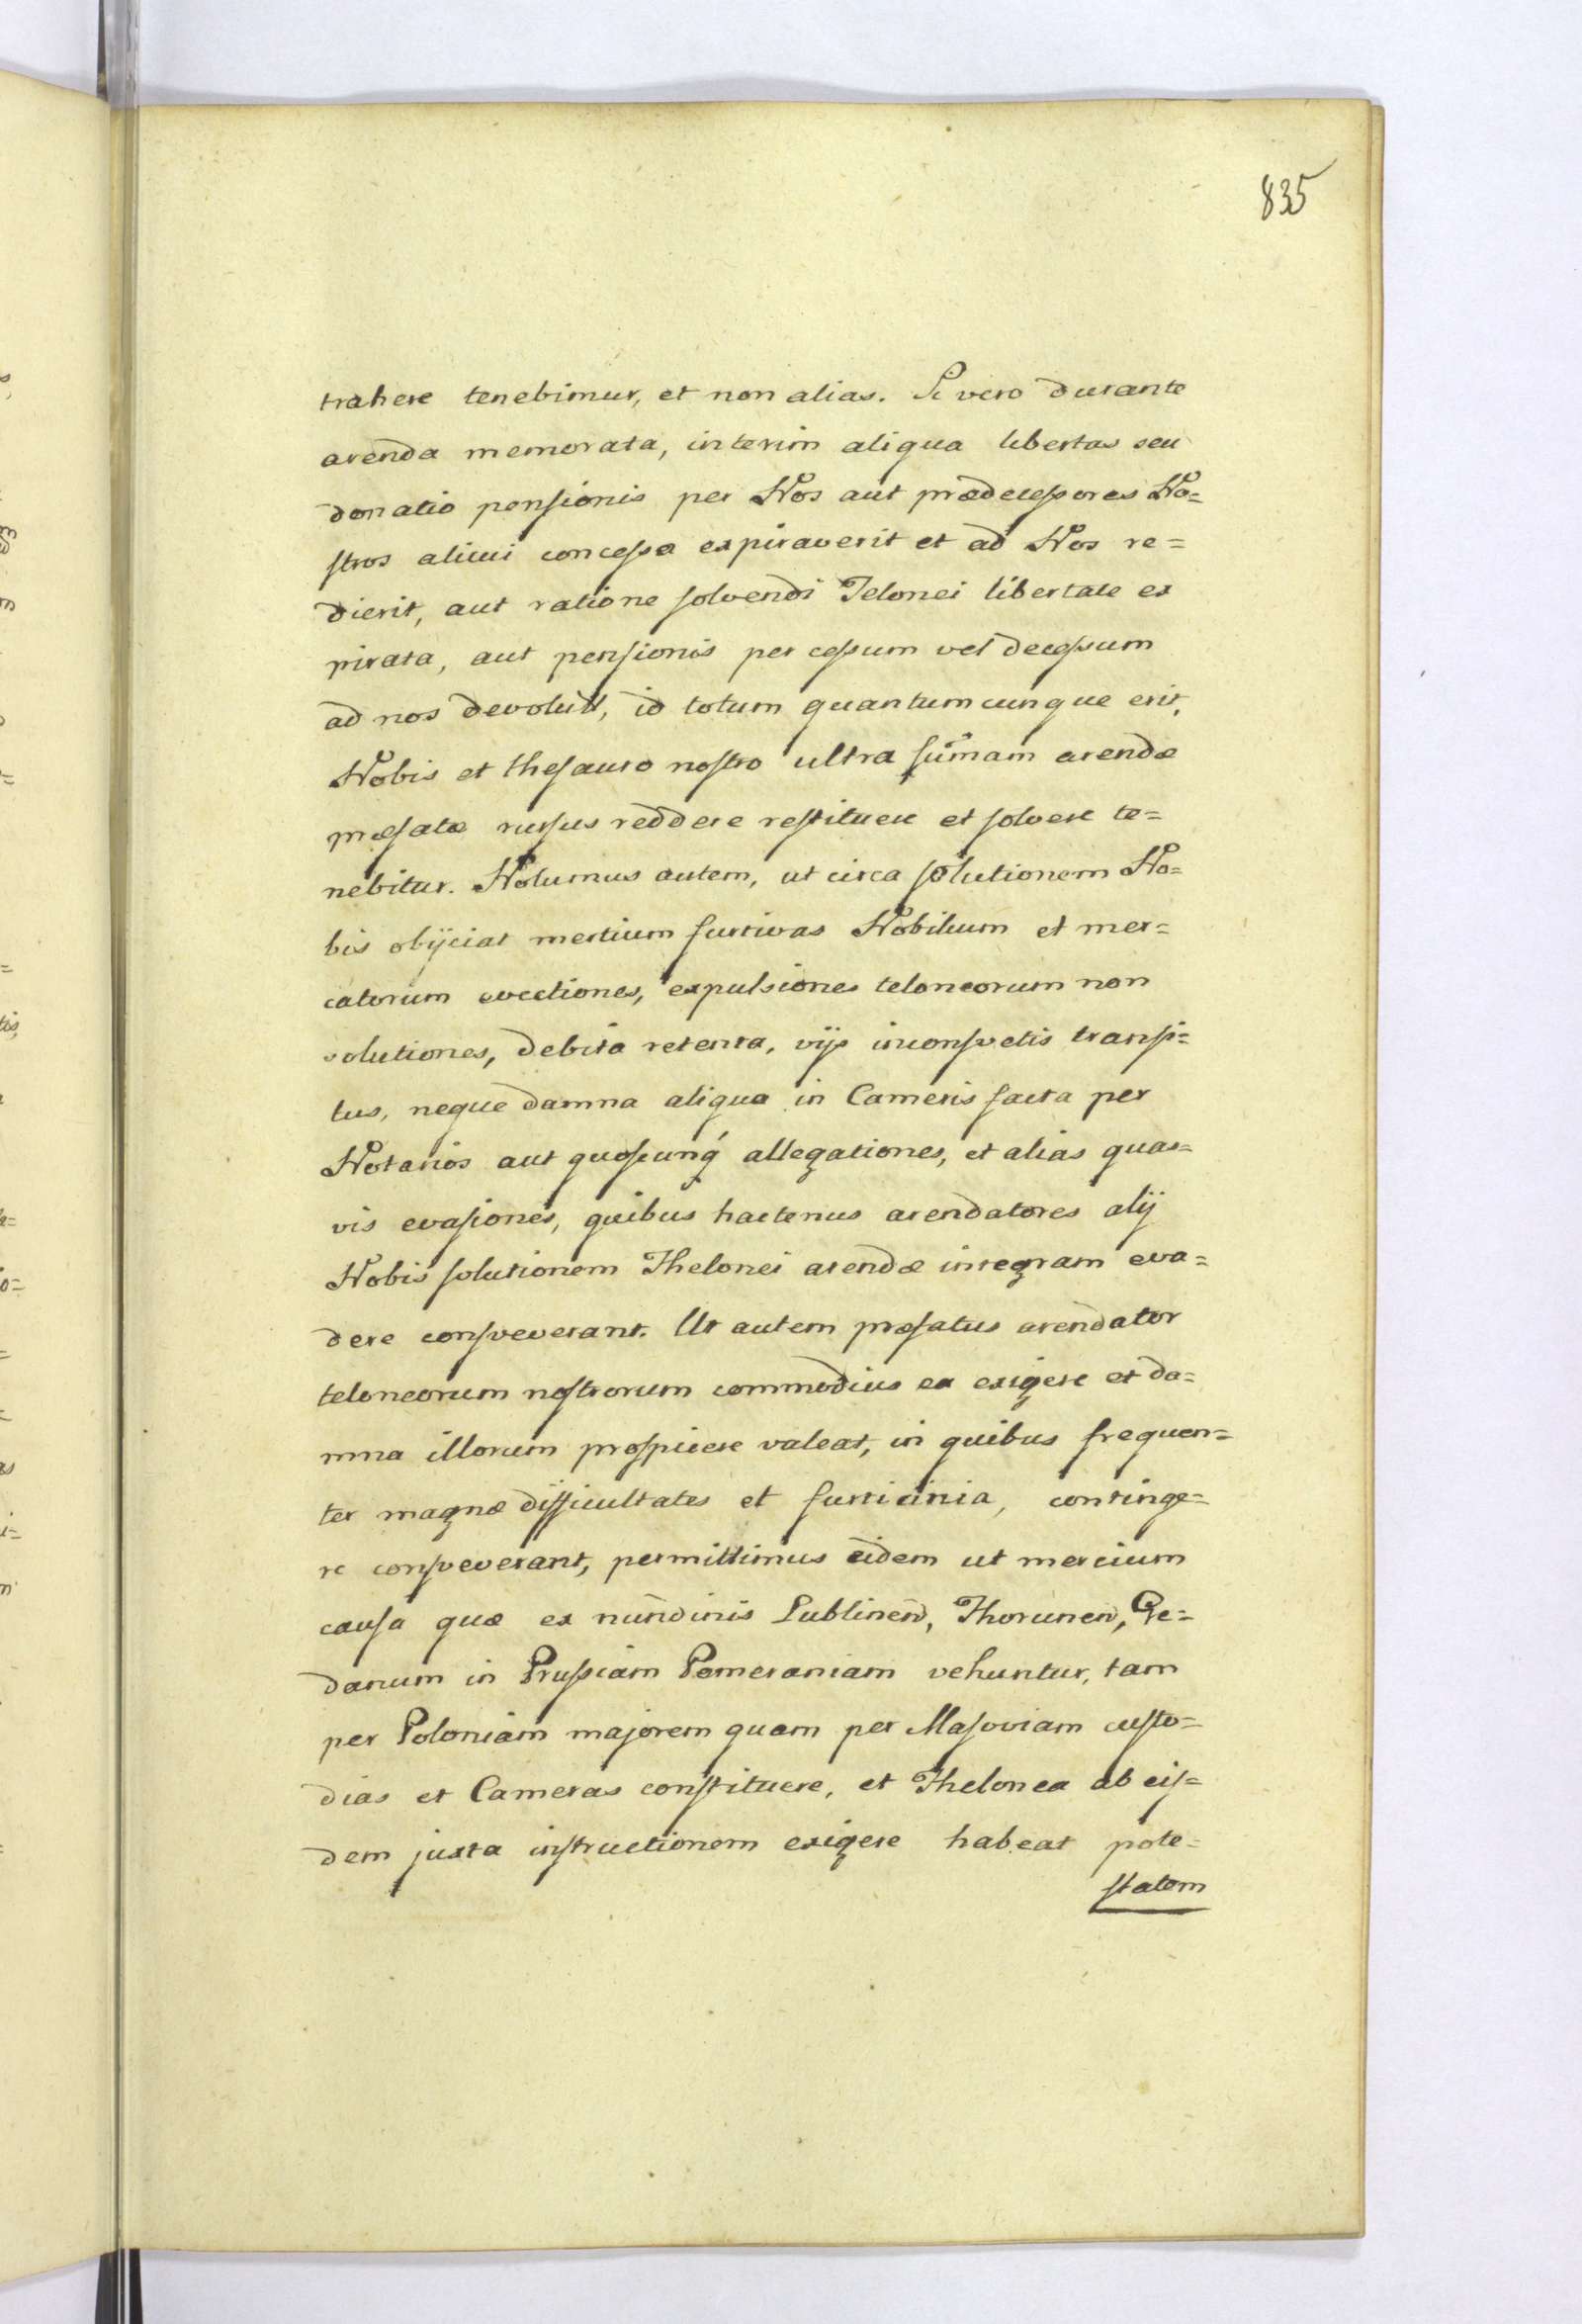 835
trahere tenebimur, et non alias. Si vero durante
arenda memorata, interim aliqua libertas seu
donatio pensionis per Nos aut prædecessores No=
stros alicui concessa expiraverit et ad Nos re=
dierit, aut ratione solvendi Telonei libertate ex
pirata, aut pensionis per cessum vel decessum
ad nos devoluta, id totum quantumcunque erit,
Nobis et thesauro nostro ultra sum̄am arendæ
præfatæ rursus reddere restituere et solvere te=
nebitur. Nolumus autem, ut circa solutionem No=
bis obijciat mertium furtivas Nobilium et mer=
catorum evectiones, expulsiones teloneorum non
solutiones, debita retenta, vijs inconsvetis transi=
tus, neque damna aliqua in Cameris facta per
Notarios aut quoscunq́ allegationes, et alias quas=
vis evasiones, quibus hactenus arendatores alij
Nobis solutionem Thelonei arendæ integram eva=
dere consveverant. Ut autem præfatus arendator
teloneorum nostrorum commodius ea exigere et da=
mna illorum prospicere valeat, in quibus frequen=
ter magnæ difficultates et furticinia, continge=
re consveverant, permittimus eidem ut mercium
causa quæ ex nundinis Lublinen̄, Thorunen̄, Ge=
danum in Prussiam Pomeraniam vehuntur, tam
per Poloniam majorem quam per Masoviam custo=
dias et Cameras constituere, et Thelonea ab eis=
dem juxta instructionem exigere habeat pote=
statem